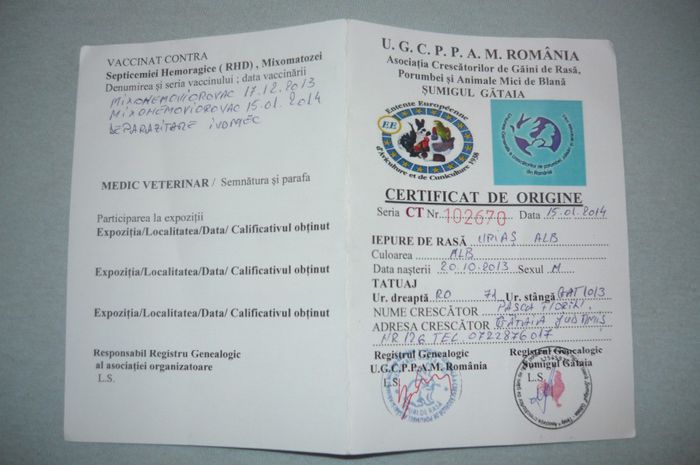 VACCINAT CONTRA
Septicemiei Hemoragice ( RHD) , Mixomatozei
Denumirea şi seria vaccinului ; data vaccinării
MIXOHEMOVIOROVAC 17.12.2013
MIXOHEMOVIOROVAC 15.01.2014
DEPARAZITARE IVOMEC
MEDIC VETERINAR / Semnătura şi parafa
Participarea la expoziţii
Expoziţia/Localitatea/Data/ Calificativul obţinut
Expoziţia/Localitatea/Data/ Calificativul obţinut
Expoziţia/Localitatea/Data/ Calificativul obţinut
Responsabil Registru Genealogic
al asociaţiei organizatoare
L.S.
U. G. C. P. P. A. M. ROMÂNIA
Asociaţia Crescătorilor de Găini de Rasă,
Porumbei şi Animale Mici de Blană
ŞUMIGUL GĂTAIA
Entente Européenne
EE
d'Aviculture et de Cuniculture 1938
din România
CERTIFICAT DE ORIGINE
Seria CT Nr. 102670 Data 15.01.2014
IEPURE DE RASĂ URIAŞ ALB
Culoarea ALB
Data naşterii 20.10.2013 Sexul M
TATUAJ
Ur. dreaptă RO 71 Ur. stângă GAT1013
NUME CRESCĂTOR PASCA
ADRESA CRESCĂTOR GĂTAIA JUD TIMIŞ
NR 126 TEL 0722876017
Registrul Genealogic
U.G.C.P.P.A.M. România
L.S.
Registrul Genealogic
Şumigul Gătaia
L.S.